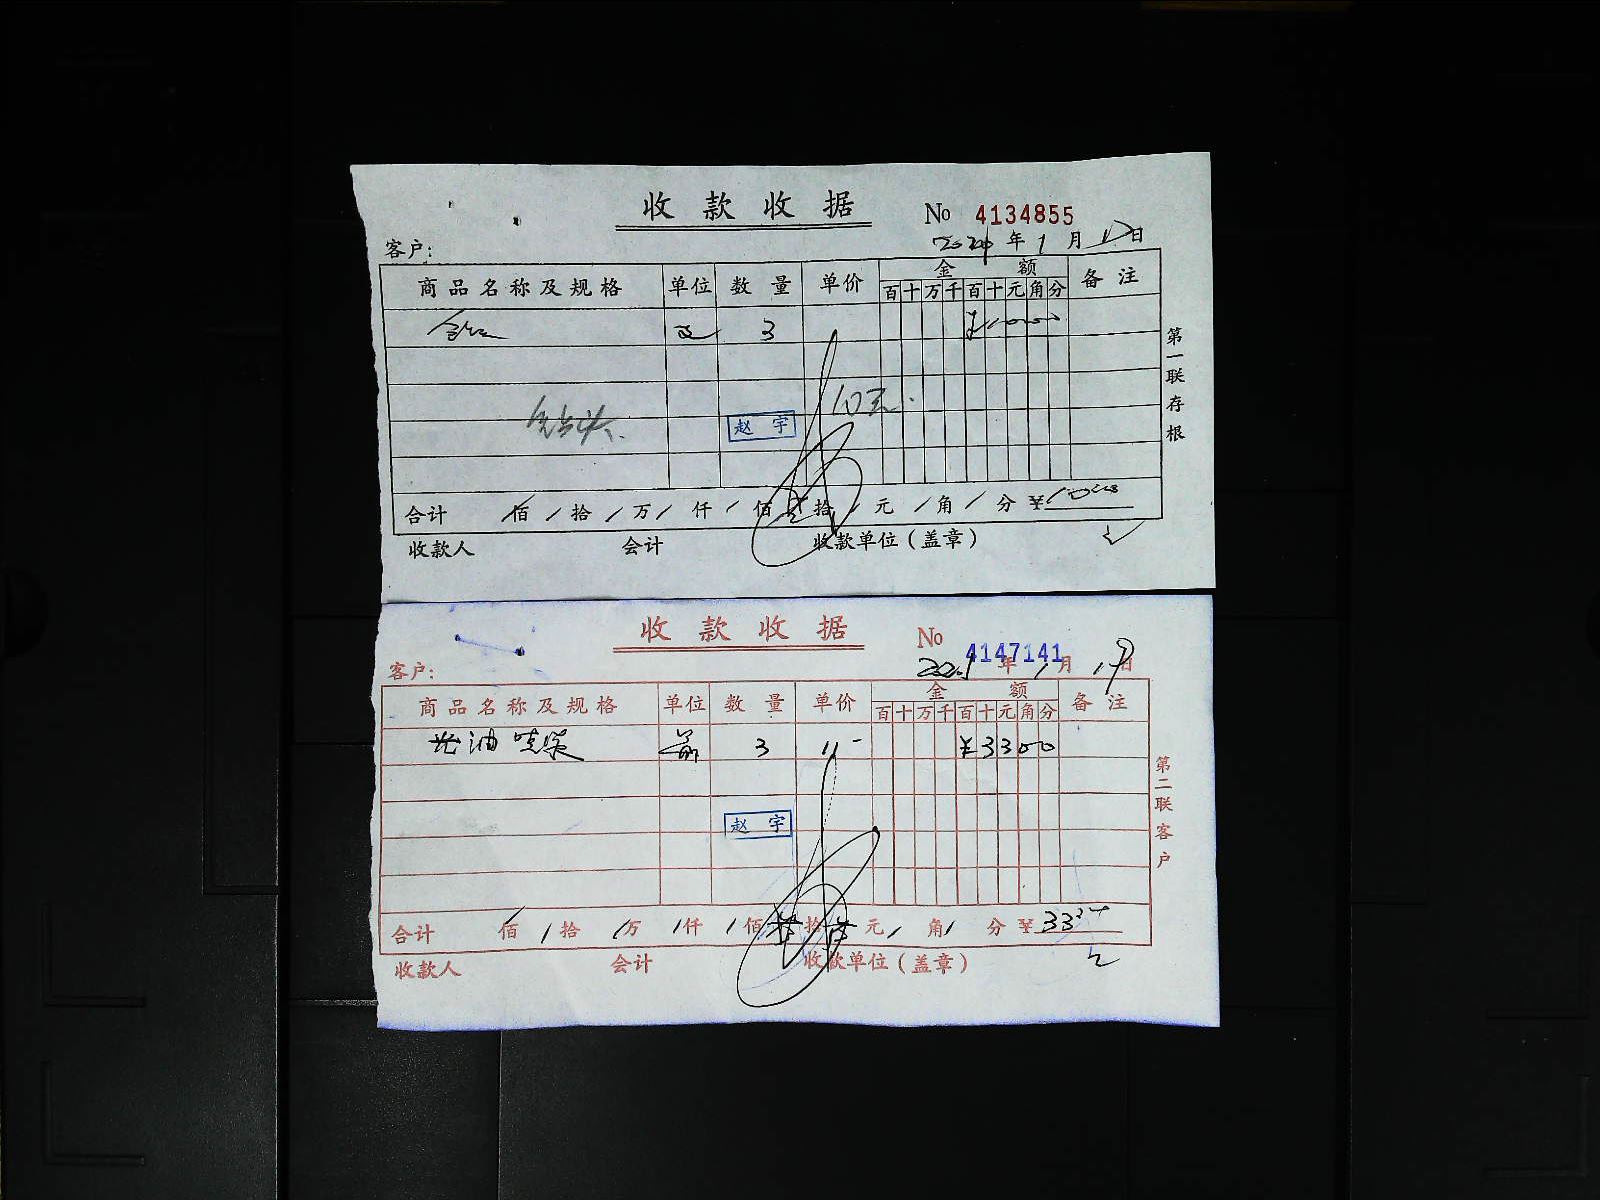 收款收据
No 4134855
年1月 日
客户:
商品名称及规格 单位 数量 单价 金额 备注
百十万千百十元角分
3
10元.
赵宇
第一联存根
合计 佰/拾/万/仟/佰 拾/元/角/分¥
收款人 会计 收款单位(盖章)
收款收据
No 4147141
年1月19日
客户:
商品名称及规格 单位 数量 单价 金额 备注
百十万千百十元角分
3 11- ¥3300
赵宇
第二联客户
合计 佰/拾/万/仟/佰叁拾叁元/角/分¥33
收款人 会计 收款单位(盖章)